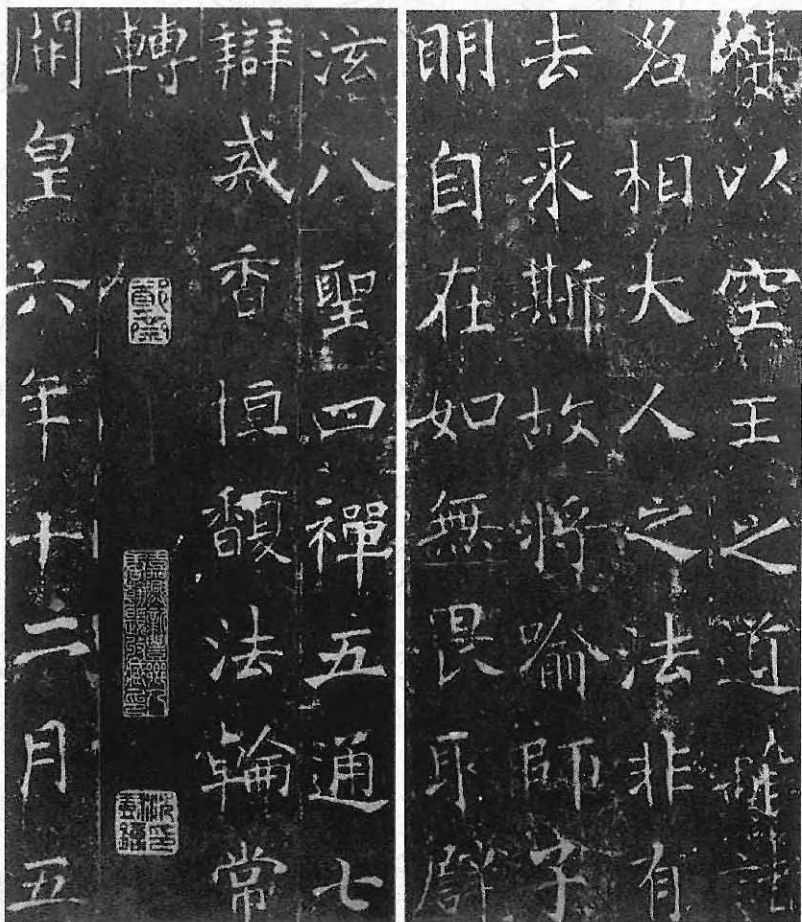 以空王之道離諸
名相大人之法非有
去来斯故將喻師子
明自在如無畏取譬
泫八聖四禪五通七
辯戒香恒馥法輪常
轉
鄭齋
開皇六年十二月五